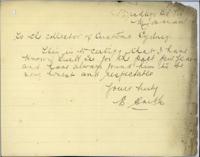 To the collector of Customs Sydney
This is to certify that I have
known for the past few years
and have always found him to be
very honest and respectable
Yours truly
E. Smith